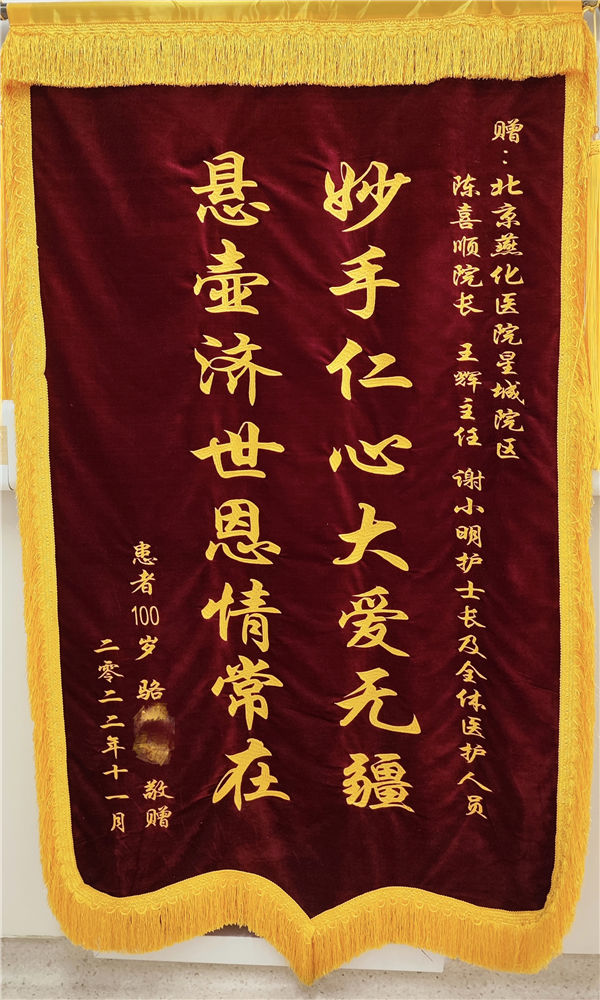 赠：北京燕化医院星城院区
陈喜顺院长 王辉主任 谢小明护士长及全体医护人员
妙手仁心大爱无疆
悬壶济世恩情常在
患者100岁 骆 敬赠
二零二二年十一月